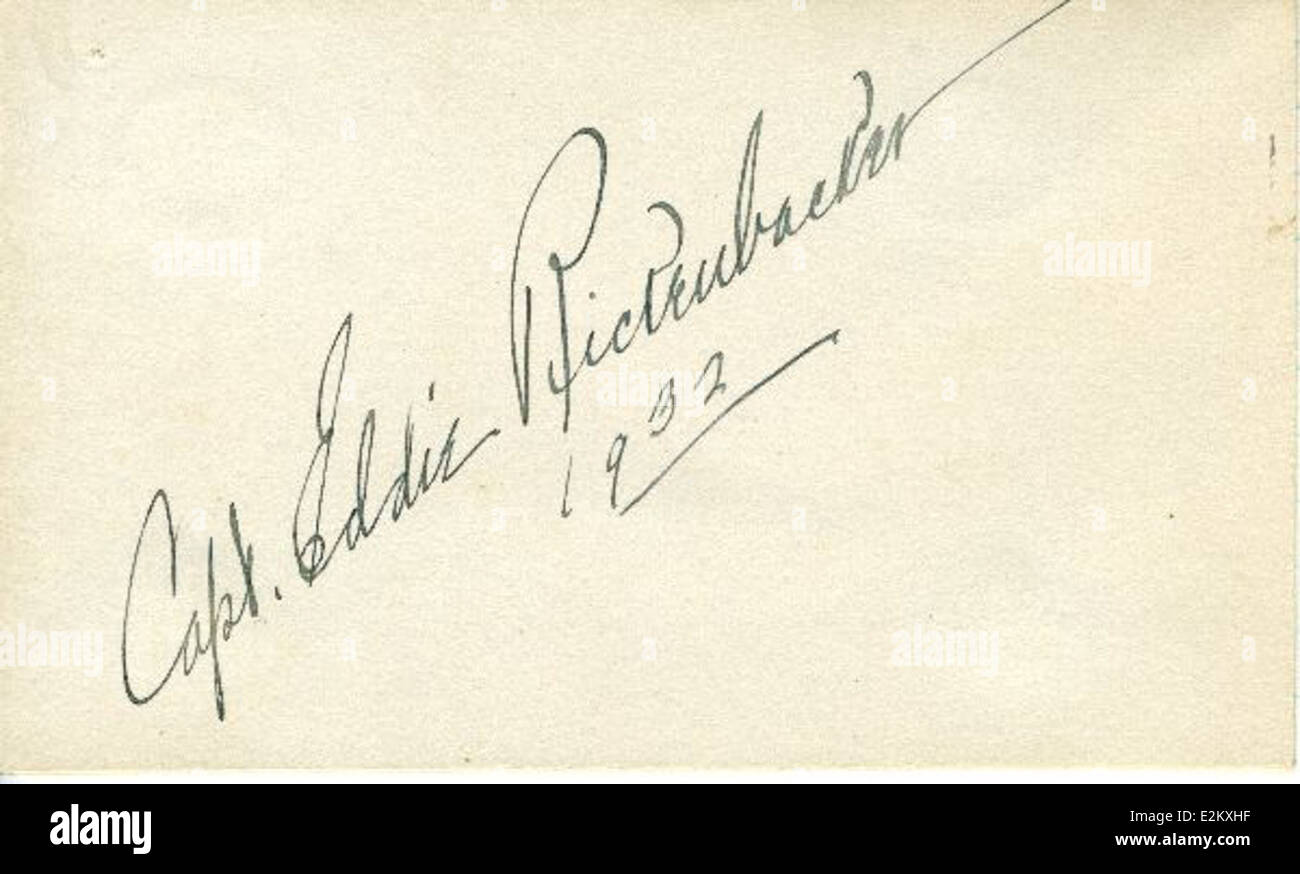 Capt. Eddie Rickenbacker
1932
alamy
alamy
alamy
alamy
alamy
alamy
Image ID: E2KXHF
www.alamy.com